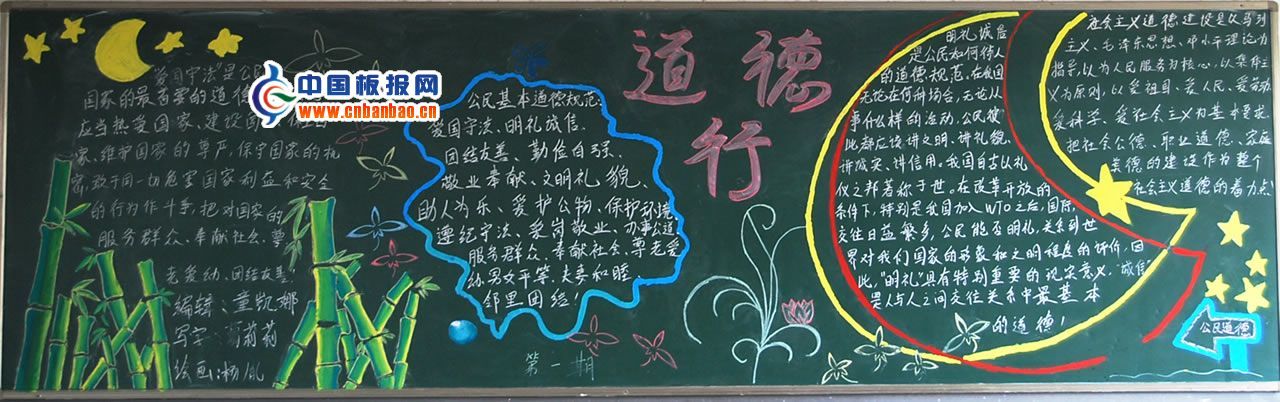 "爱国守法"是公民
国家的最首要的道德
应当热爱国家、建设
家、维护国家的尊严、保守国家的机
密,敢于同一切危害国家利益和安全
的行为作斗争,把对国家的
服务群众、奉献社会、尊
老爱幼、团结友善。
编辑:董凯娜
写字:莉莉
绘画:杨胤
中国板报网
www.cnbanbao.cn
公民基本道德规范:
爱国守法、明礼诚信、
团结友善、勤俭自强、
敬业奉献、文明礼貌、
助人为乐、爱护公物、保护环境
遵纪守法、爱岗敬业、办事公道
服务群众、奉献社会、尊老爱
幼、男女平等、夫妻和睦、
邻里团结!
第一期
道德
行
明礼诚信
是公民如何待人
的道德规范,在我国
无论在何种场合,无论从
事什么样的活动,公民彼
此都应该讲文明、讲礼貌、
讲诚实、讲信用,我国自古以礼
仪之邦著称于世,在改革开放的
条件下,特别是我国加入WTO之后,国际
交往日益繁多,公民能否明礼,关系到世
界对我们国家的形象和文明程度的评价,因
此,"明礼"具有特别重要的现实意义,"诚信"
是人与人之间交往关系中最基本
的道德!
社会主义道德建设是以马列
主义、毛泽东思想、邓小平理论为
指导,以为人民服务为核心,以集体主
义为原则,以爱祖国、爱人民、爱劳动、
爱科学、爱社会主义为基本要求
把社会公德、职业道德、家庭
美德的建设作为整个
社会主义道德的着力点!
公民道德